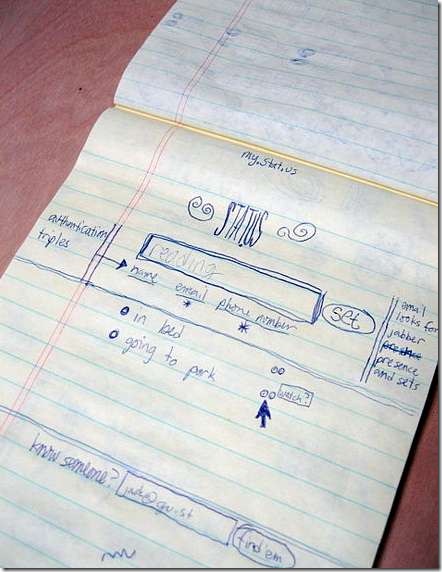 my.stat.us
STATUS
reading
set
authentication
triples
name email phone number
in bed
going to park
watch?
email
looks for
jabber
presence
and sets
know someone?
find'em